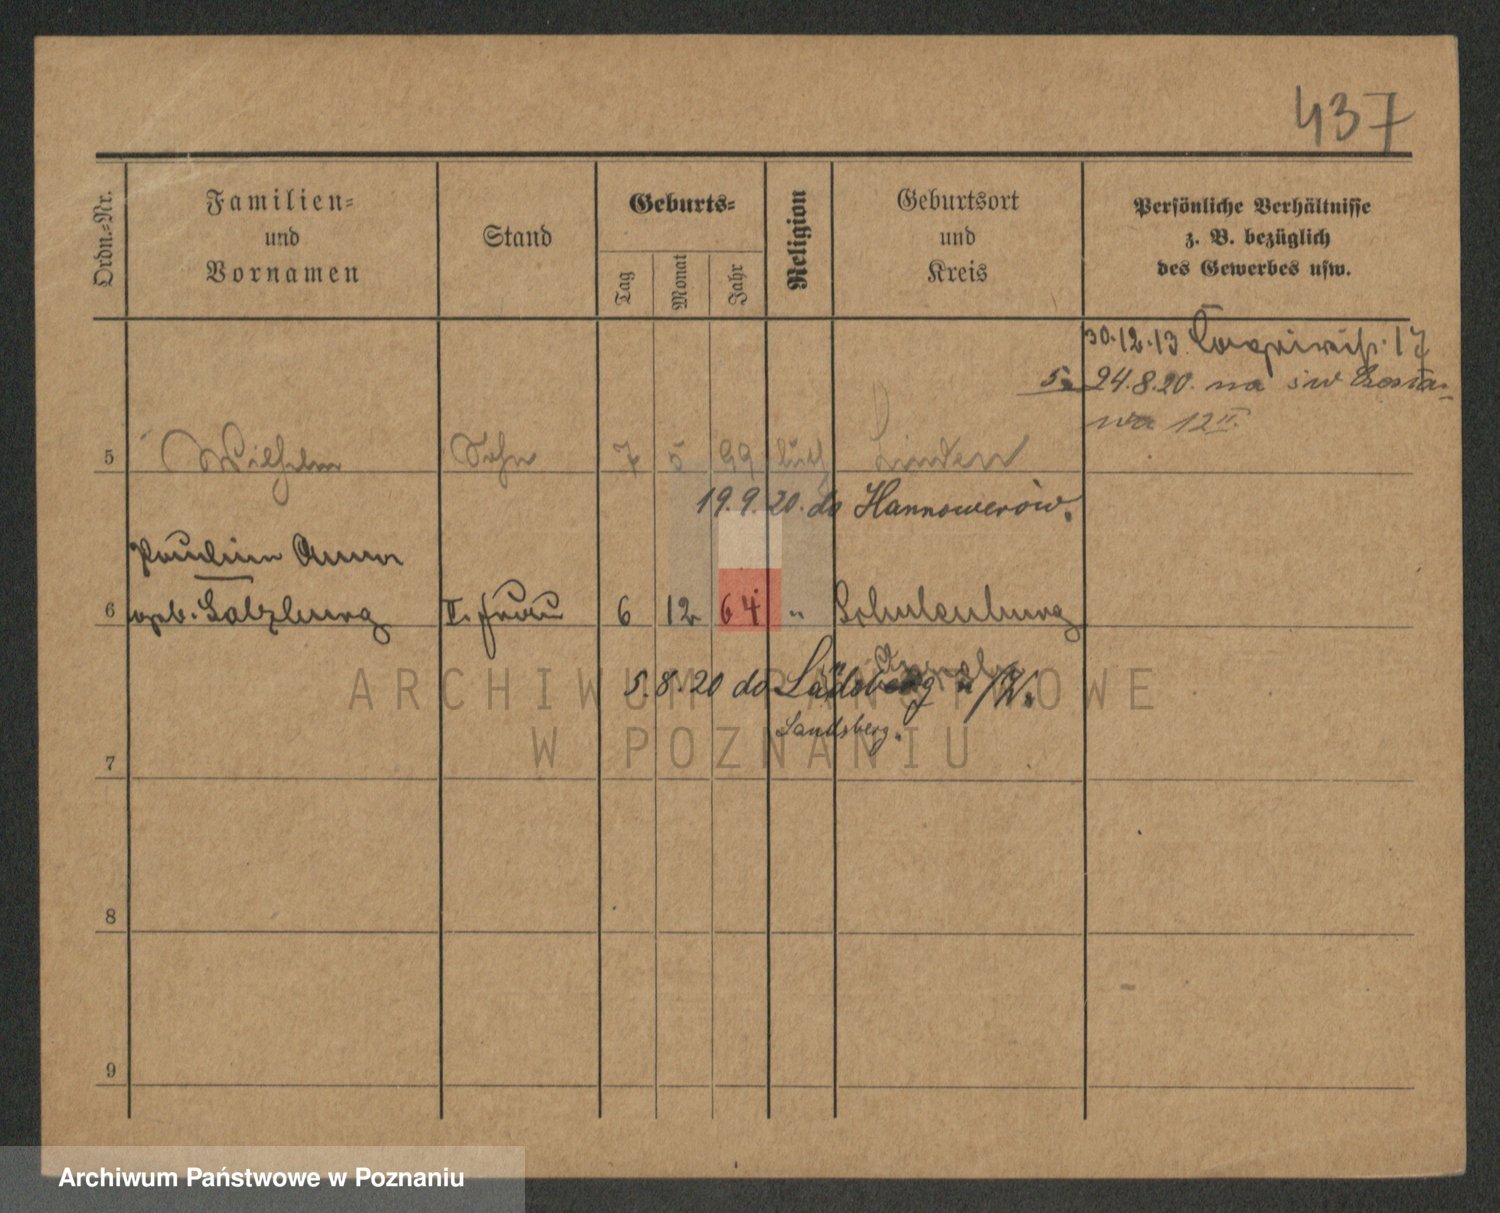 437
Ordn.-Nr.
Familien-
und
Vornamen
Stand
Geburts-
Tag
Monat
Jahr
Religion
Geburtsort
und
Kreis
Persönliche Verhältnisse
z. B. bezüglich
des Gewerbes usw.
30.12.13 17
5. 24.8.20. na św
wa 12 II.
5 Wilhelm Sohn 7 5 99 luth Linden
19.9.20. do Hannowerów.
Pauline Anna
6 geb. Salzburg II. Frau 6 12 64 " Schulenburg
5.8.20 do a/W.
Landsberg.
7
8
9
ARCHIWUM PAŃSTWOWE
W POZNANIU
Archiwum Państwowe w Poznaniu